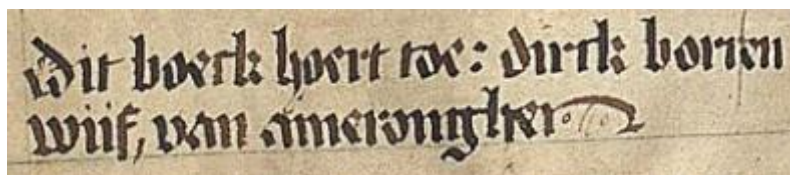 Dit boeck hoert toe: dirck borren
wiif, van amerongher